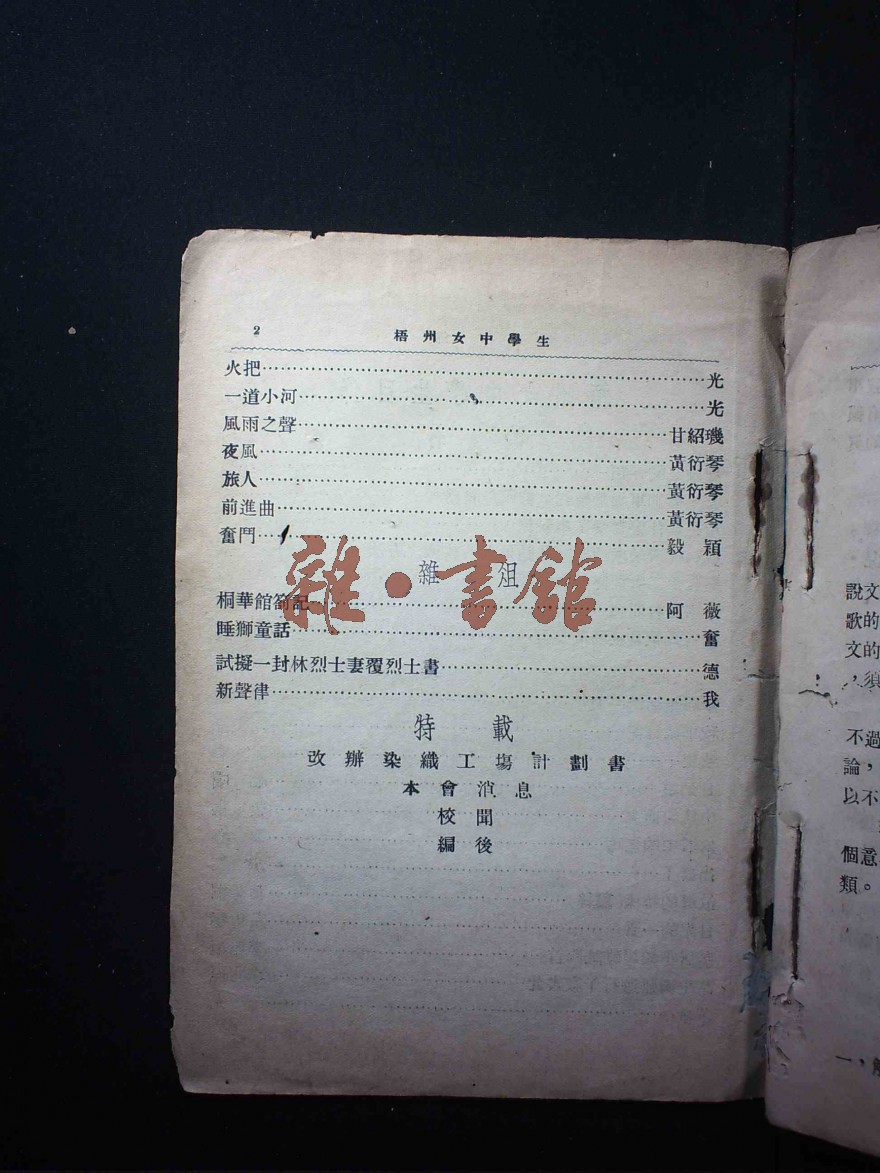 2
梧州女中學生
火把……光
一道小河……光
風雨之聲……甘紹璣
夜風……黃衍琴
旅人……黃衍琴
前進曲……黃衍琴
奮鬥……毅穎
雜俎
雜·書館
桐華館劄記……阿薇
睡獅童話……奮
試擬一封林烈士妻覆烈士書……德
新聲律……我
特載
改辦染織工塲計劃書
本會消息
校聞
編後
說文
歌的
文的
，須
不過
論，
以不
個意
類。
一，